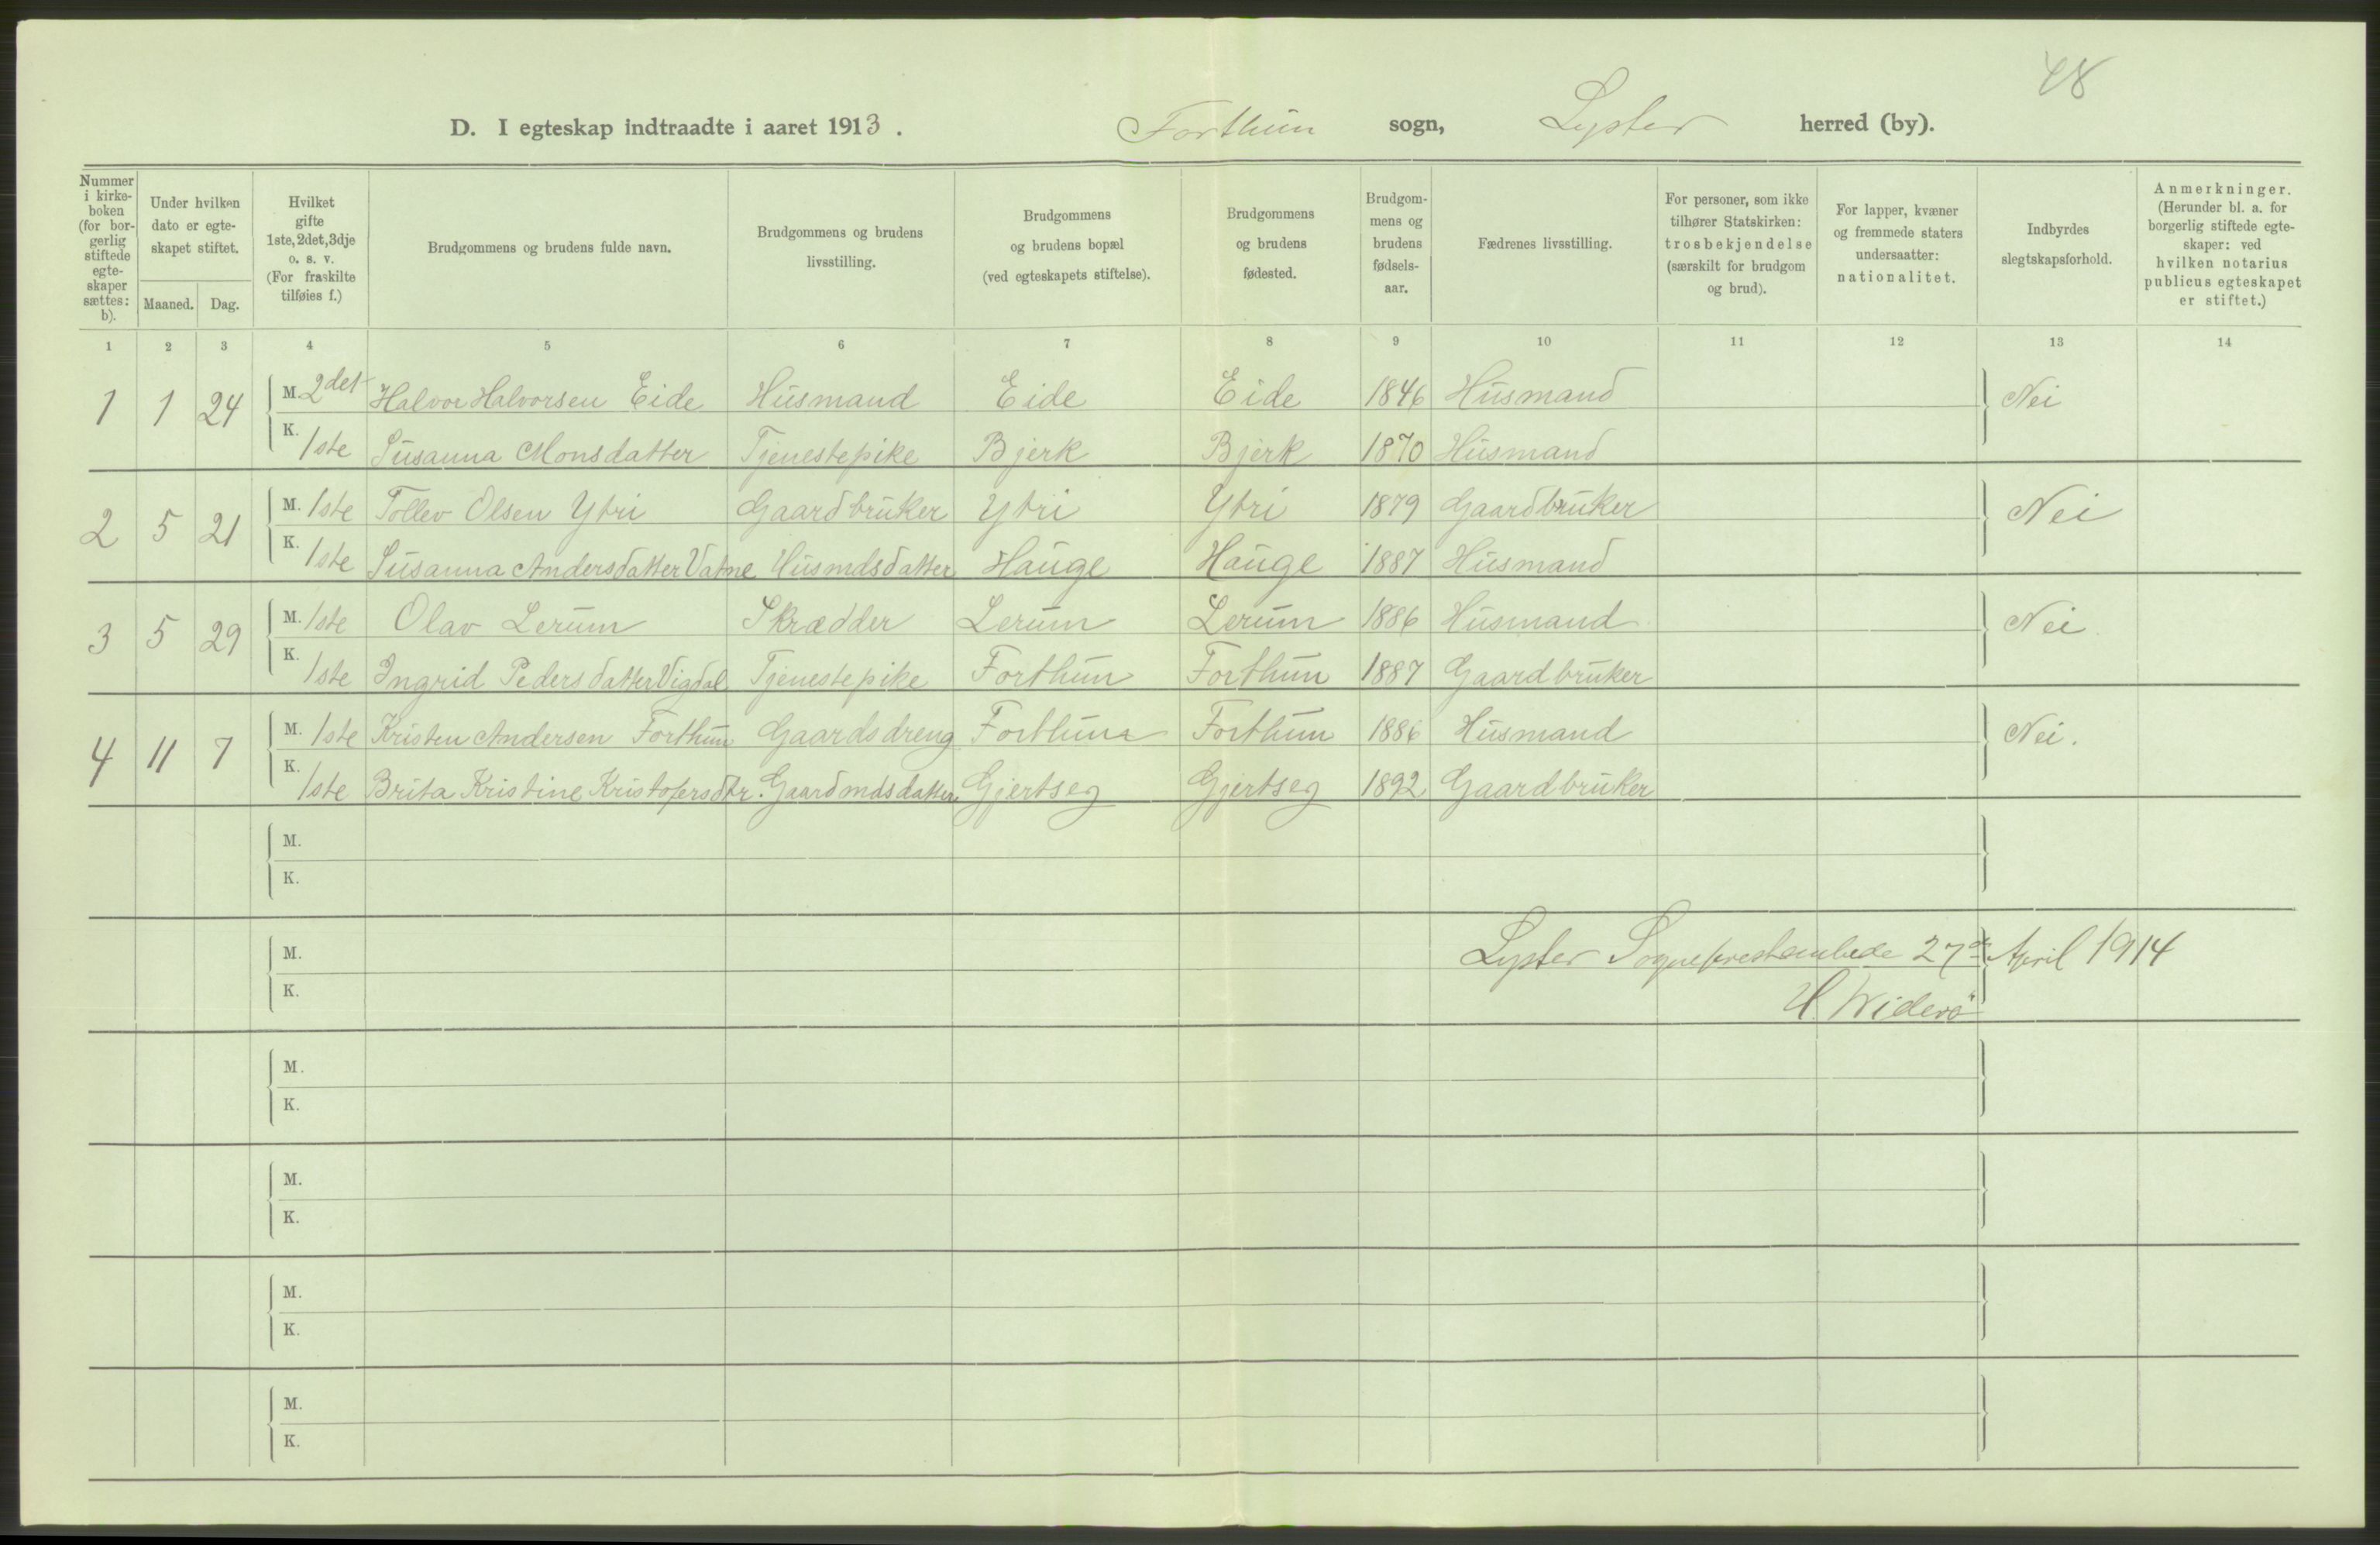 48
D. I egteskap indtraadte i aaret 1913. Forthun sogn, Lyster herred (by).
Nummer i kirke-boken (for bor-gerlig stiftede egte-skaper sættes: b).
Under hvilken dato er egte-skapet stiftet.
Maaned. Dag.
Hvilket gifte 1ste, 2det, 3dje o. s. v. (For fraskilte tilføies f.)
Brudgommens og brudens fulde navn.
Brudgommens og brudens livsstilling.
Brudgommens og brudens bopæl (ved egteskapets stiftelse).
Brudgommens og brudens fødested.
Brudgom-mens og brudens fødsels-aar.
Fædrenes livsstilling.
For personer, som ikke tilhører Statskirken: trosbekjendelse (særskilt for brudgom og brud).
For lapper, kvæner og fremmede staters undersaatter: nationalitet.
Indbyrdes slegtskapsforhold.
Anmerkninger. (Herunder bl. a. for borgerlig stiftede egte-skaper: ved hvilken notarius publicus egteskapet er stiftet.)
1 2 3 4 5 6 7 8 9 10 11 12 13 14
1 1 24 M. 2det Halvor Halvorsen Eide Husmand Eide Eide 1846 Husmand Nei
K. 1ste Susanna Monsdatter Tjenestepike Bjerk Bjerk 1870 Husmand
2 5 21 M. 1ste Tollev Olsen Ytri Gaardbruker Ytri Ytri 1879 Gaardbruker Nei
K. 1ste Susanna Andersdatter Vatne Husmdsdatter Hauge Hauge 1887 Husmand
3 5 29 M. 1ste Olav Lerum Skrædder Lerum Lerum 1886 Husmand Nei
K. 1ste Ingrid Pedersdatter Vigdal Tjenestepike Forthun Forthun 1887 Gaardbruker
4 11 7 M. 1ste Kristen Andersen Forthun Gaardsdreng Forthun Forthun 1886 Husmand Nei.
K. 1ste Brita Kristine Kristofersdtr. Gaardmdsdatter Gjertseg Gjertseg 1892 Gaardbruker
M.
K.
M. Lyster Sogneprestembede 27de April 1914
K. H. Widerö
M.
K.
M.
K.
M.
K.
M.
K.